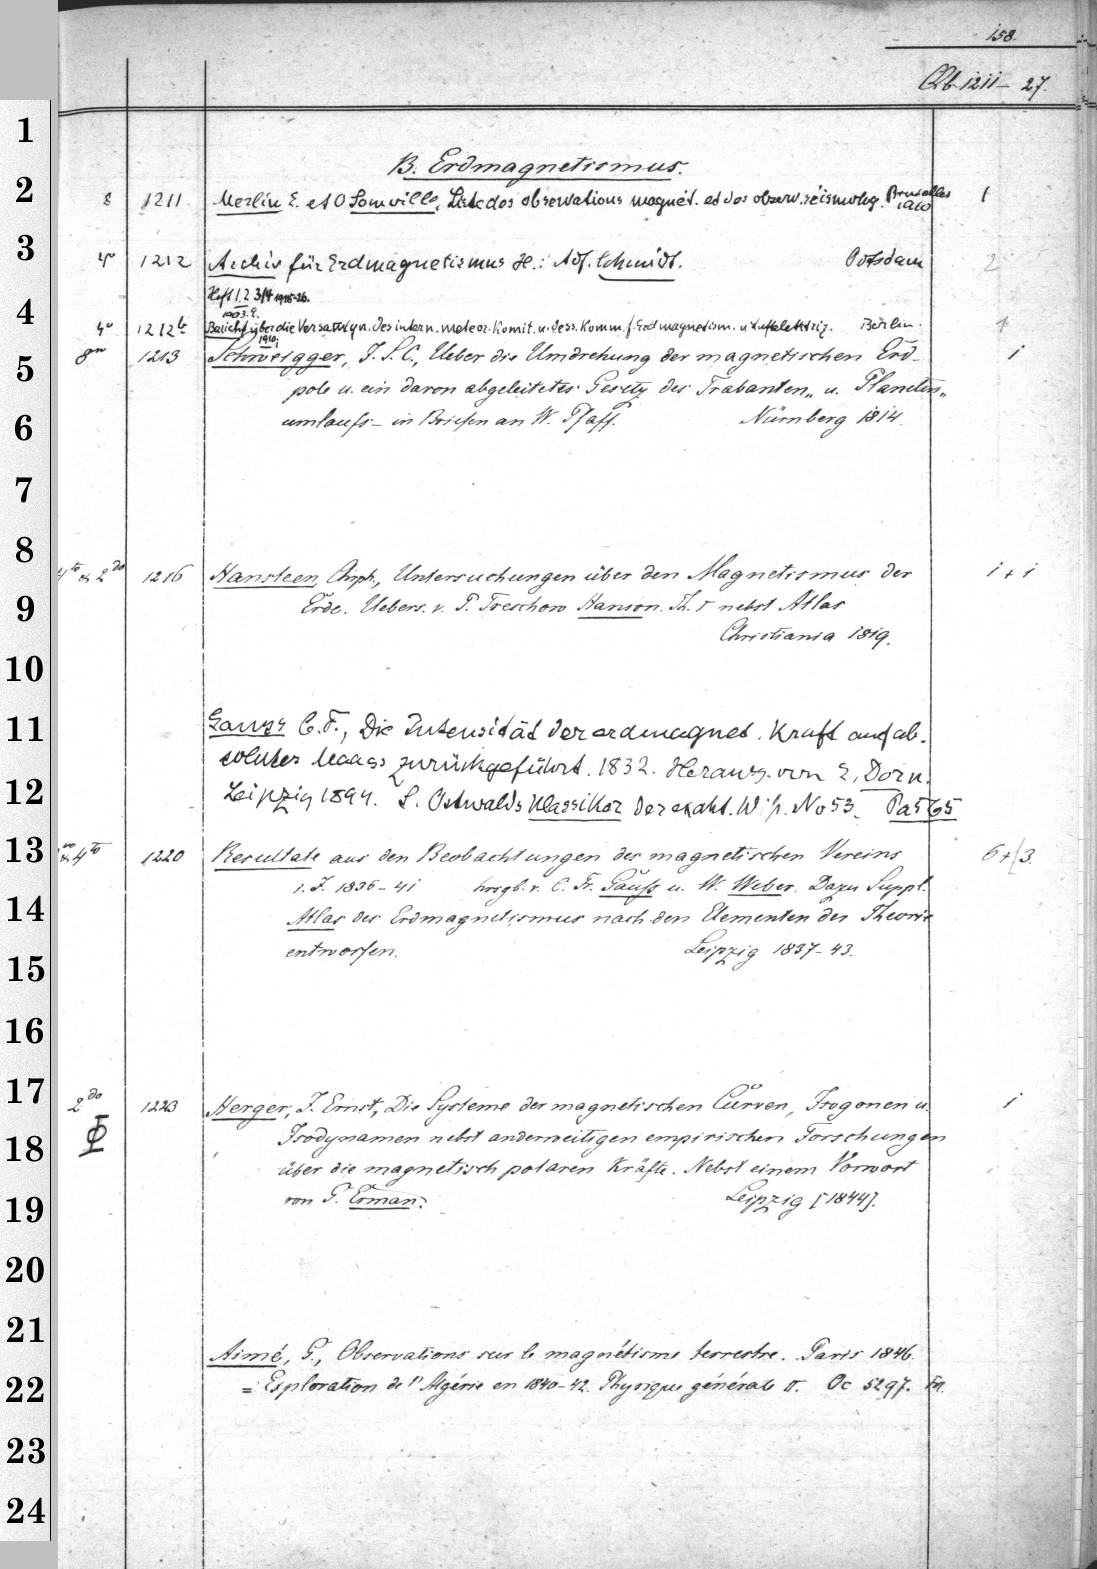 158.
Qb 1211-27.
B. Erdmagnetismus.
8 1211 Merlin E. et O Somville, Liste des observations magnét. et des observ. séismolog. Bruxelles 1910 1
4o 1212 Archiv für Erdmagnetismus H.: Adf. Schmidt. Potsdam 2
Heft 1. 2 3/4 1925-26.
1903.
4o 1212b Bericht über die Versammlgn. des intern. meteor. Komit. u. dess. Komm. f. Erdmagnetism. u. Luftelektriz. Berlin. 1
1910;
8vo 1213 Schweigger, J. S. C., Ueber die Umdrehung der magnetischen Erd- 1
pole u. ein davon abgeleitetes Gesetz des Trabanten- u. Planeten-
umlaufs - in Briefen an W. Pfaff. Nürnberg 1814.
4to & 2do 1216 Hansteen, Chrph., Untersuchungen über den Magnetismus der 1 + 1
Erde. Uebers. v. P. Treschow Hanson. Th. I nebst Atlas
Christiania 1819.
Gauss C. F., Die Intensität der erdmagnet. Kraft auf ab-
solutes Maass zurückgeführt. 1832. Herausg. von E. Dorn.
Leipzig 1894. S. Ostwald's Klassiker der exakt. W. No 53. Pa 5765
8vo & 4to 1220 Resultate aus den Beobachtungen des magnetischen Vereins 6 + 3.
i. J. 1836-41 hrsgb. v. C. Fr. Gauß u. W. Weber. Dazu Suppl.
Atlas des Erdmagnetismus nach den Elementen der Theorie
entworfen. Leipzig 1837-43.
2do 1223 Herger, J. Ernst, Die Systeme der magnetischen Curven, Isogonen u. 1
Isodynamen nebst anderweitigen empirischen Forschungen
über die magnetisch polaren Kräfte. Nebst einem Vorwort
von P. Erman. Leipzig [1844].
Aimé, G., Observations sur le magnétisme terrestre. Paris 1846.
= Exploration de l'Algérie en 1840-42. Physique générale II. Oc 5297. Fol.
1
2
3
4
5
6
7
8
9
10
11
12
13
14
15
16
17
18
19
20
21
22
23
24